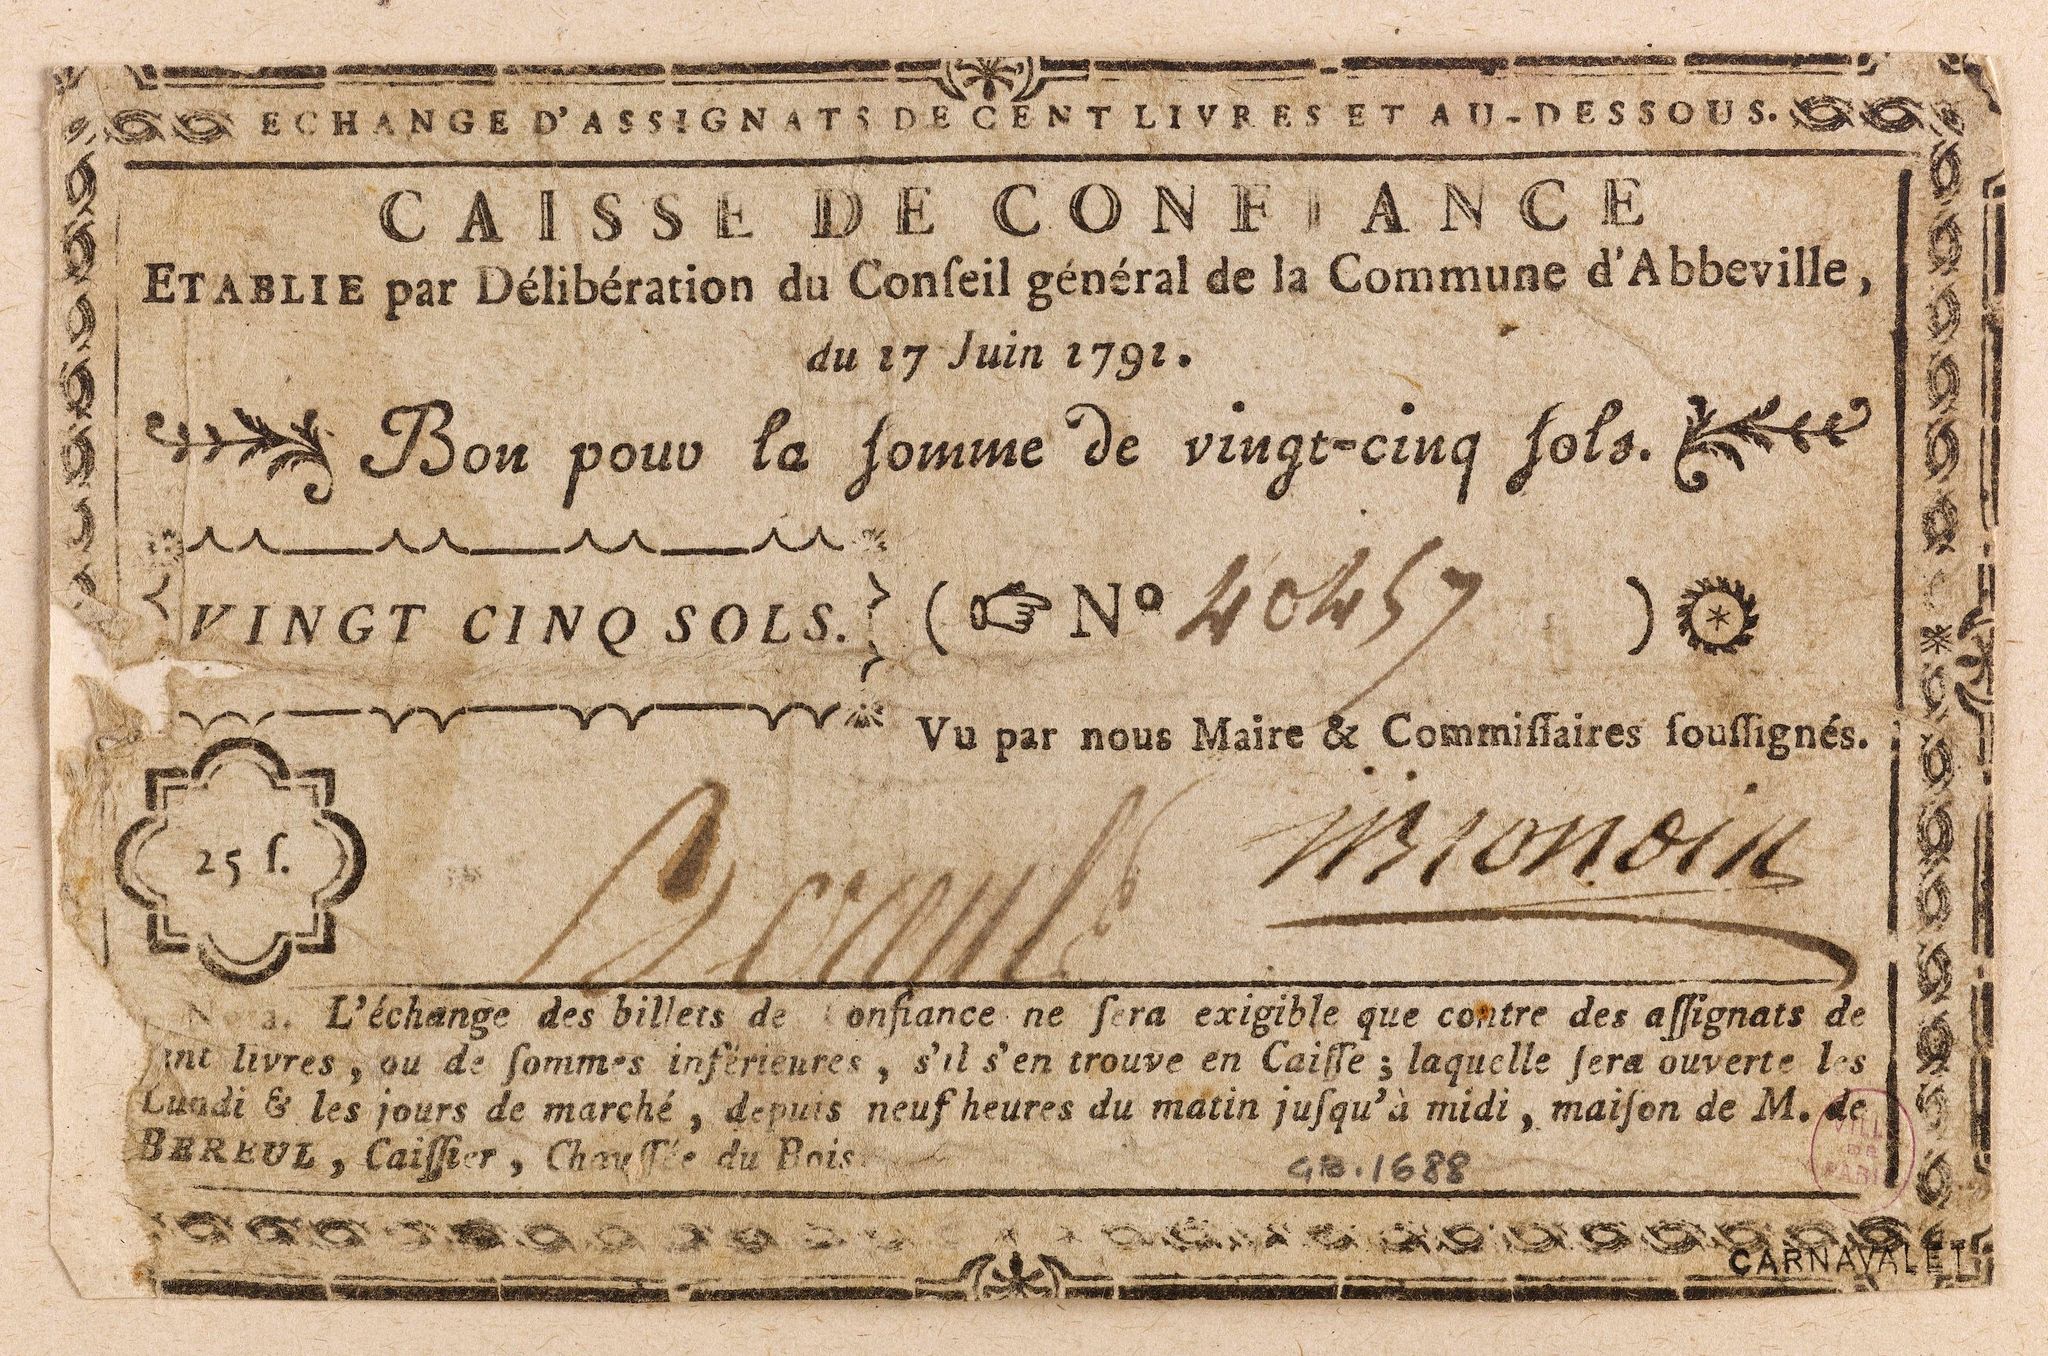 ECHANGE D'ASSIGNATS DE CENT LIVRES ET AU-DESSOUS.
CAISSE DE CONFIANCE
ETABLIE par Délibération du Conſeil général de la Commune d'Abbeville,
du 17 Juin 1791.
Bon pour la ſomme de vingt-cinq ſols.
VINGT CINQ SOLS. ( Nº 40457 )
Vu par nous Maire & Commiſſaires ſouſſignés.
25 ſ.
Nota. L'échange des billets de Confiance ne ſera exigible que contre des aſſignats de
cent livres, ou de ſommes inférieures, s'il s'en trouve en Caiſſe; laquelle ſera ouverte les
Lundi & les jours de marché, depuis neuf heures du matin juſqu'à midi, maiſon de M. de
BEREUL, Caiſſier, Chauſſée du Bois.
GB.1688
VILLE
DE
PARIS
CARNAVALET